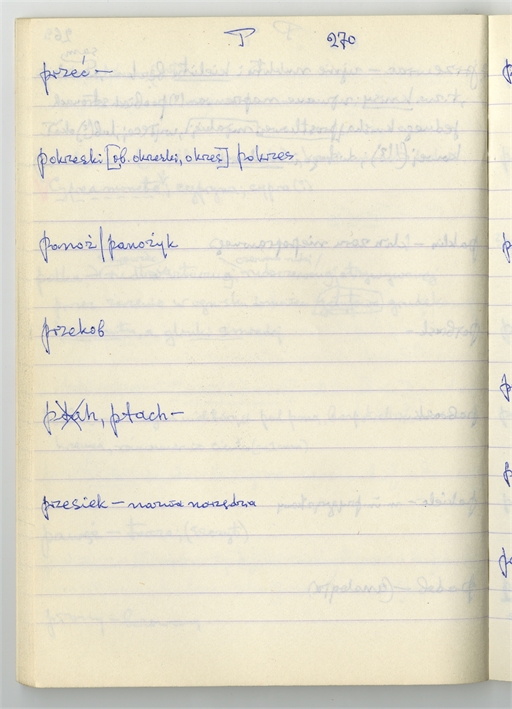 P 270
przeć —
pokreski [ob. okreski, okres] pokres
panoż / panożyk
przekob
ptah, płach —
przesiek — nazwa narzędzia